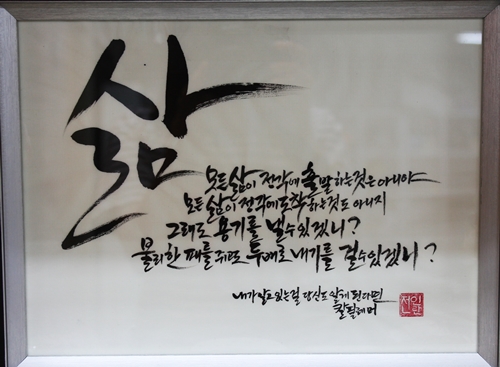 삶
모든 삶이 정각에 출발하는것은 아니야
모든 삶이 정각에 도착하는것도 아니지
그래도 용기를 낼수있겠니?
불리한 패를 쥐고도 두배로 내기를 걸수있겠니?
내가 알고 있는걸 당신도 알게 된다면
칼 필레머